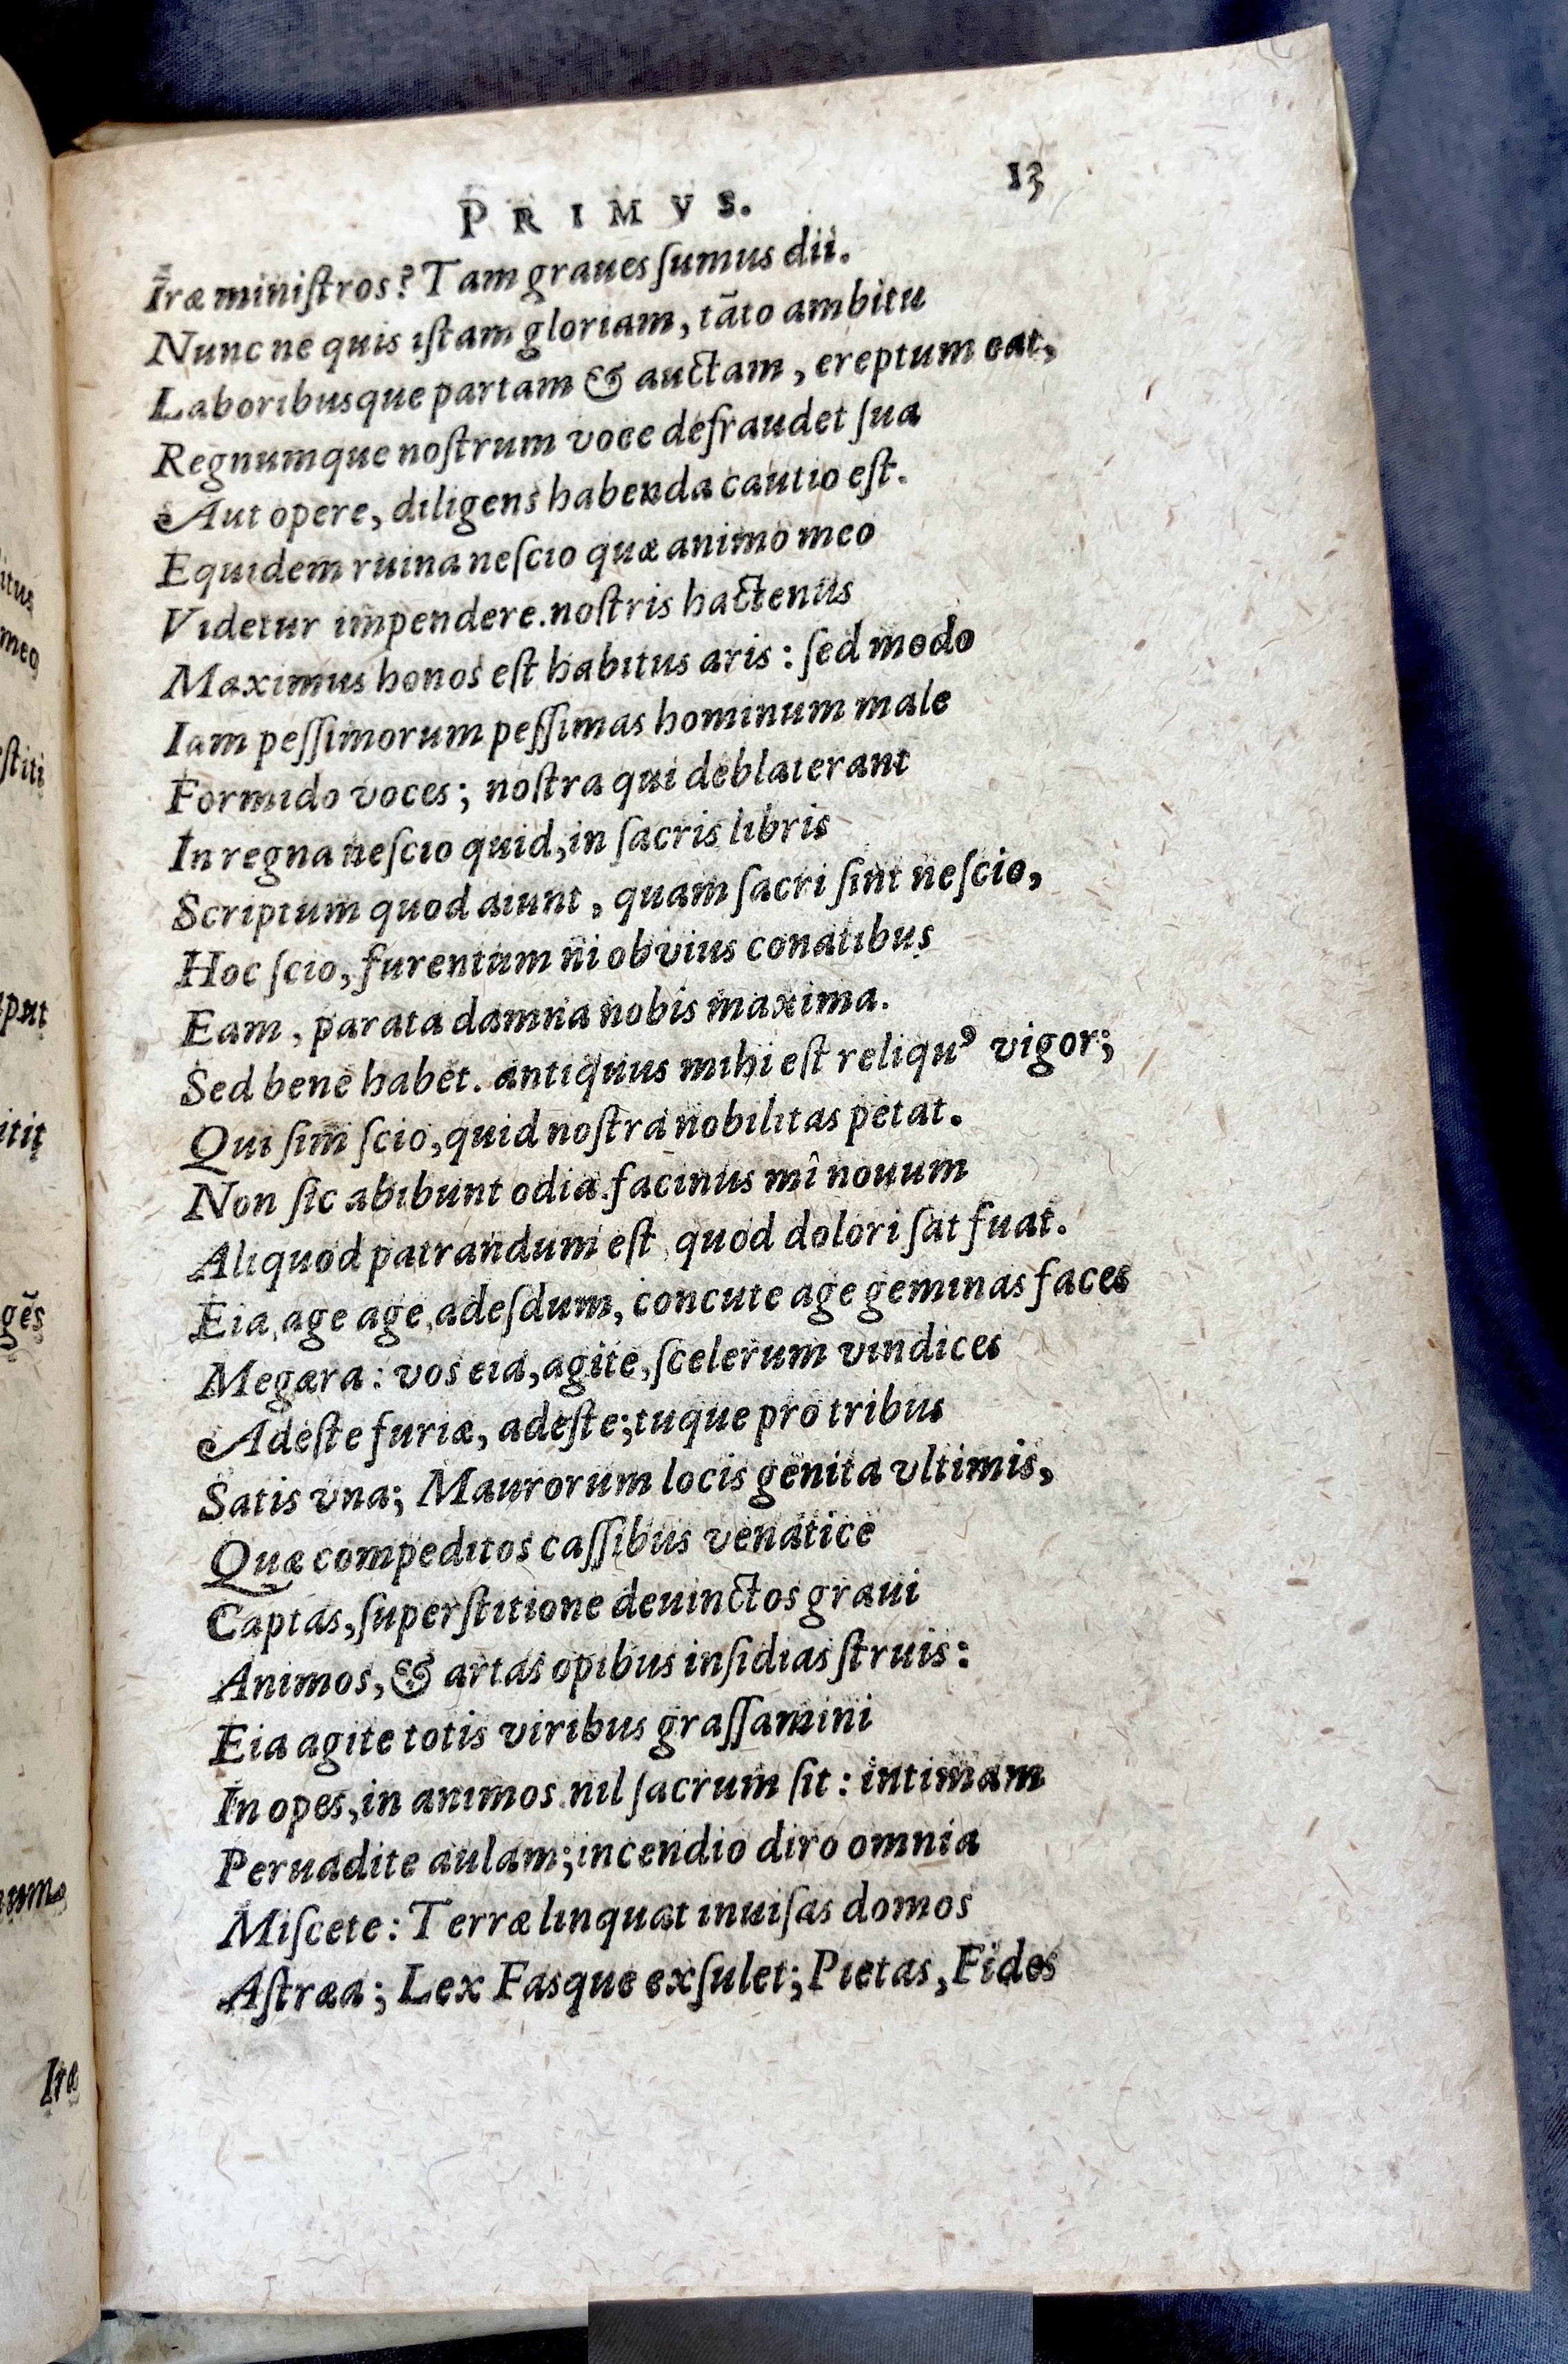 PRIMVS. 13
Iræ miniſtros? Tam graues ſumus dii.
Nunc ne quis iſtam gloriam, tāto ambitu
Laboribusque partam & auctam, ereptum eat,
Regnumque noſtrum voce defraudet ſua
Aut opere, diligens habenda cautio eſt.
Equidem ruina neſcio quæ animo meo
Videtur impendere. noſtris hactenus
Maximus honos eſt habitus aris: ſed modo
Iam peſſimorum peſſimas hominum male
Formido voces; noſtra qui deblaterant
In regna neſcio quid, in ſacris libris
Scriptum quod aiunt, quam ſacri ſint neſcio,
Hoc ſcio, furentum ni obvius conatibus
Eam, parata damna nobis maxima.
Sed bene habet. antiquus mihi eſt reliquꝰ vigor;
Qui ſim ſcio, quid noſtra nobilitas petat.
Non ſic abibunt odia. facinus mî nouum
Aliquod patrandum eſt, quod dolori ſat fuat.
Eia, age age, adeſdum, concute age geminas faces
Megæra: vos eia, agite, ſcelerum vindices
Adeſte furiæ, adeſte; tuque pro tribus
Satis vna; Maurorum locis genita vltimis,
Quæ compeditos caſſibus venatice
Captas, ſuperſtitione deuinctos graui
Animos, & artas opibus inſidias ſtruis:
Eia agite totis viribus graſſamini
In opes, in animos. nil ſacrum ſit: intimam
Peruadite aulam; incendio diro omnia
Miſcete: Terræ linquat inuiſas domos
Aſtræa; Lex Fasque exſulet; Pietas, Fides
itus
meo
ſtiti
put
itit
gēs
Iræ